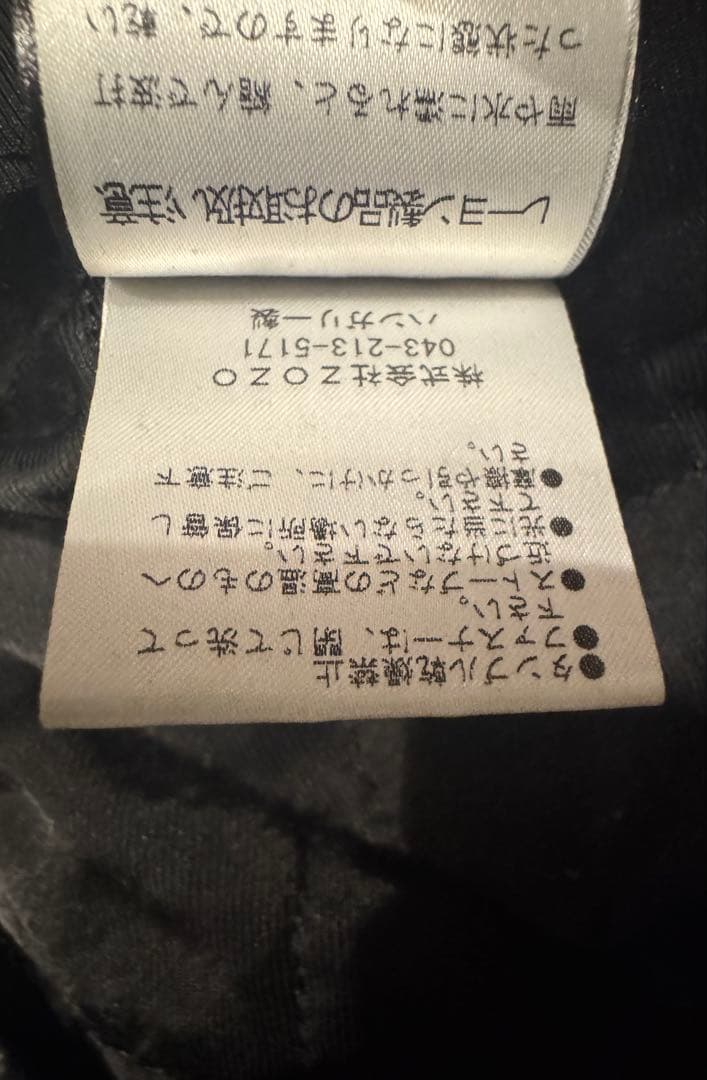 ●タンブル乾燥禁止
●ファスナーは、閉じて洗って
下さい。
●ストーブなどの高温のものへ
近づけないで下さい。
●光に当たらない場所に保管し
て下さい。
●摩擦や引っかけに、ご注意下
さい。
株式会社ZOZO
043-213-5171
ハンガリー製
レーヨン製品のお取扱い注意
雨や水に濡れると、縮んで波打
った状態になりますので、乾い